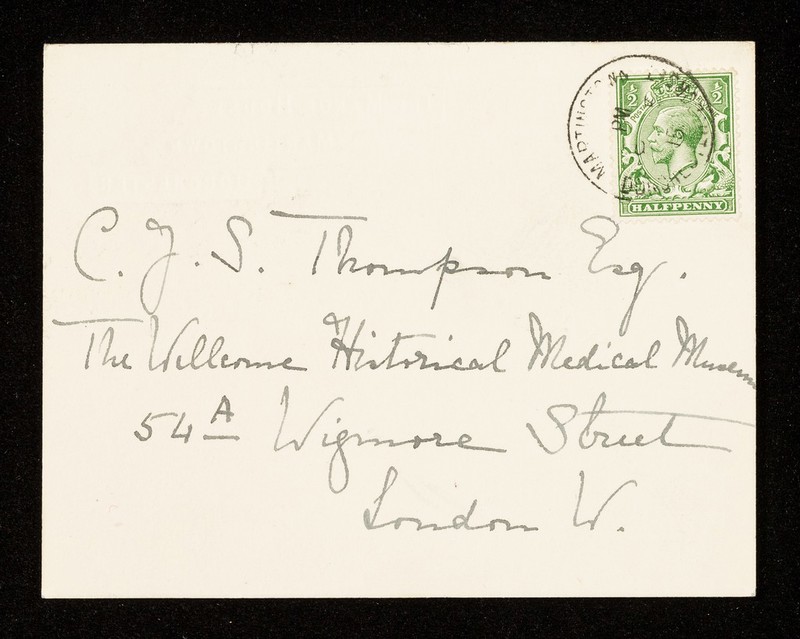 ½ ½
HALFPENNY
C. J. S. Thompson Esq.
The Wellcome Historical Medical Museum
54A Wigmore Street
London W.